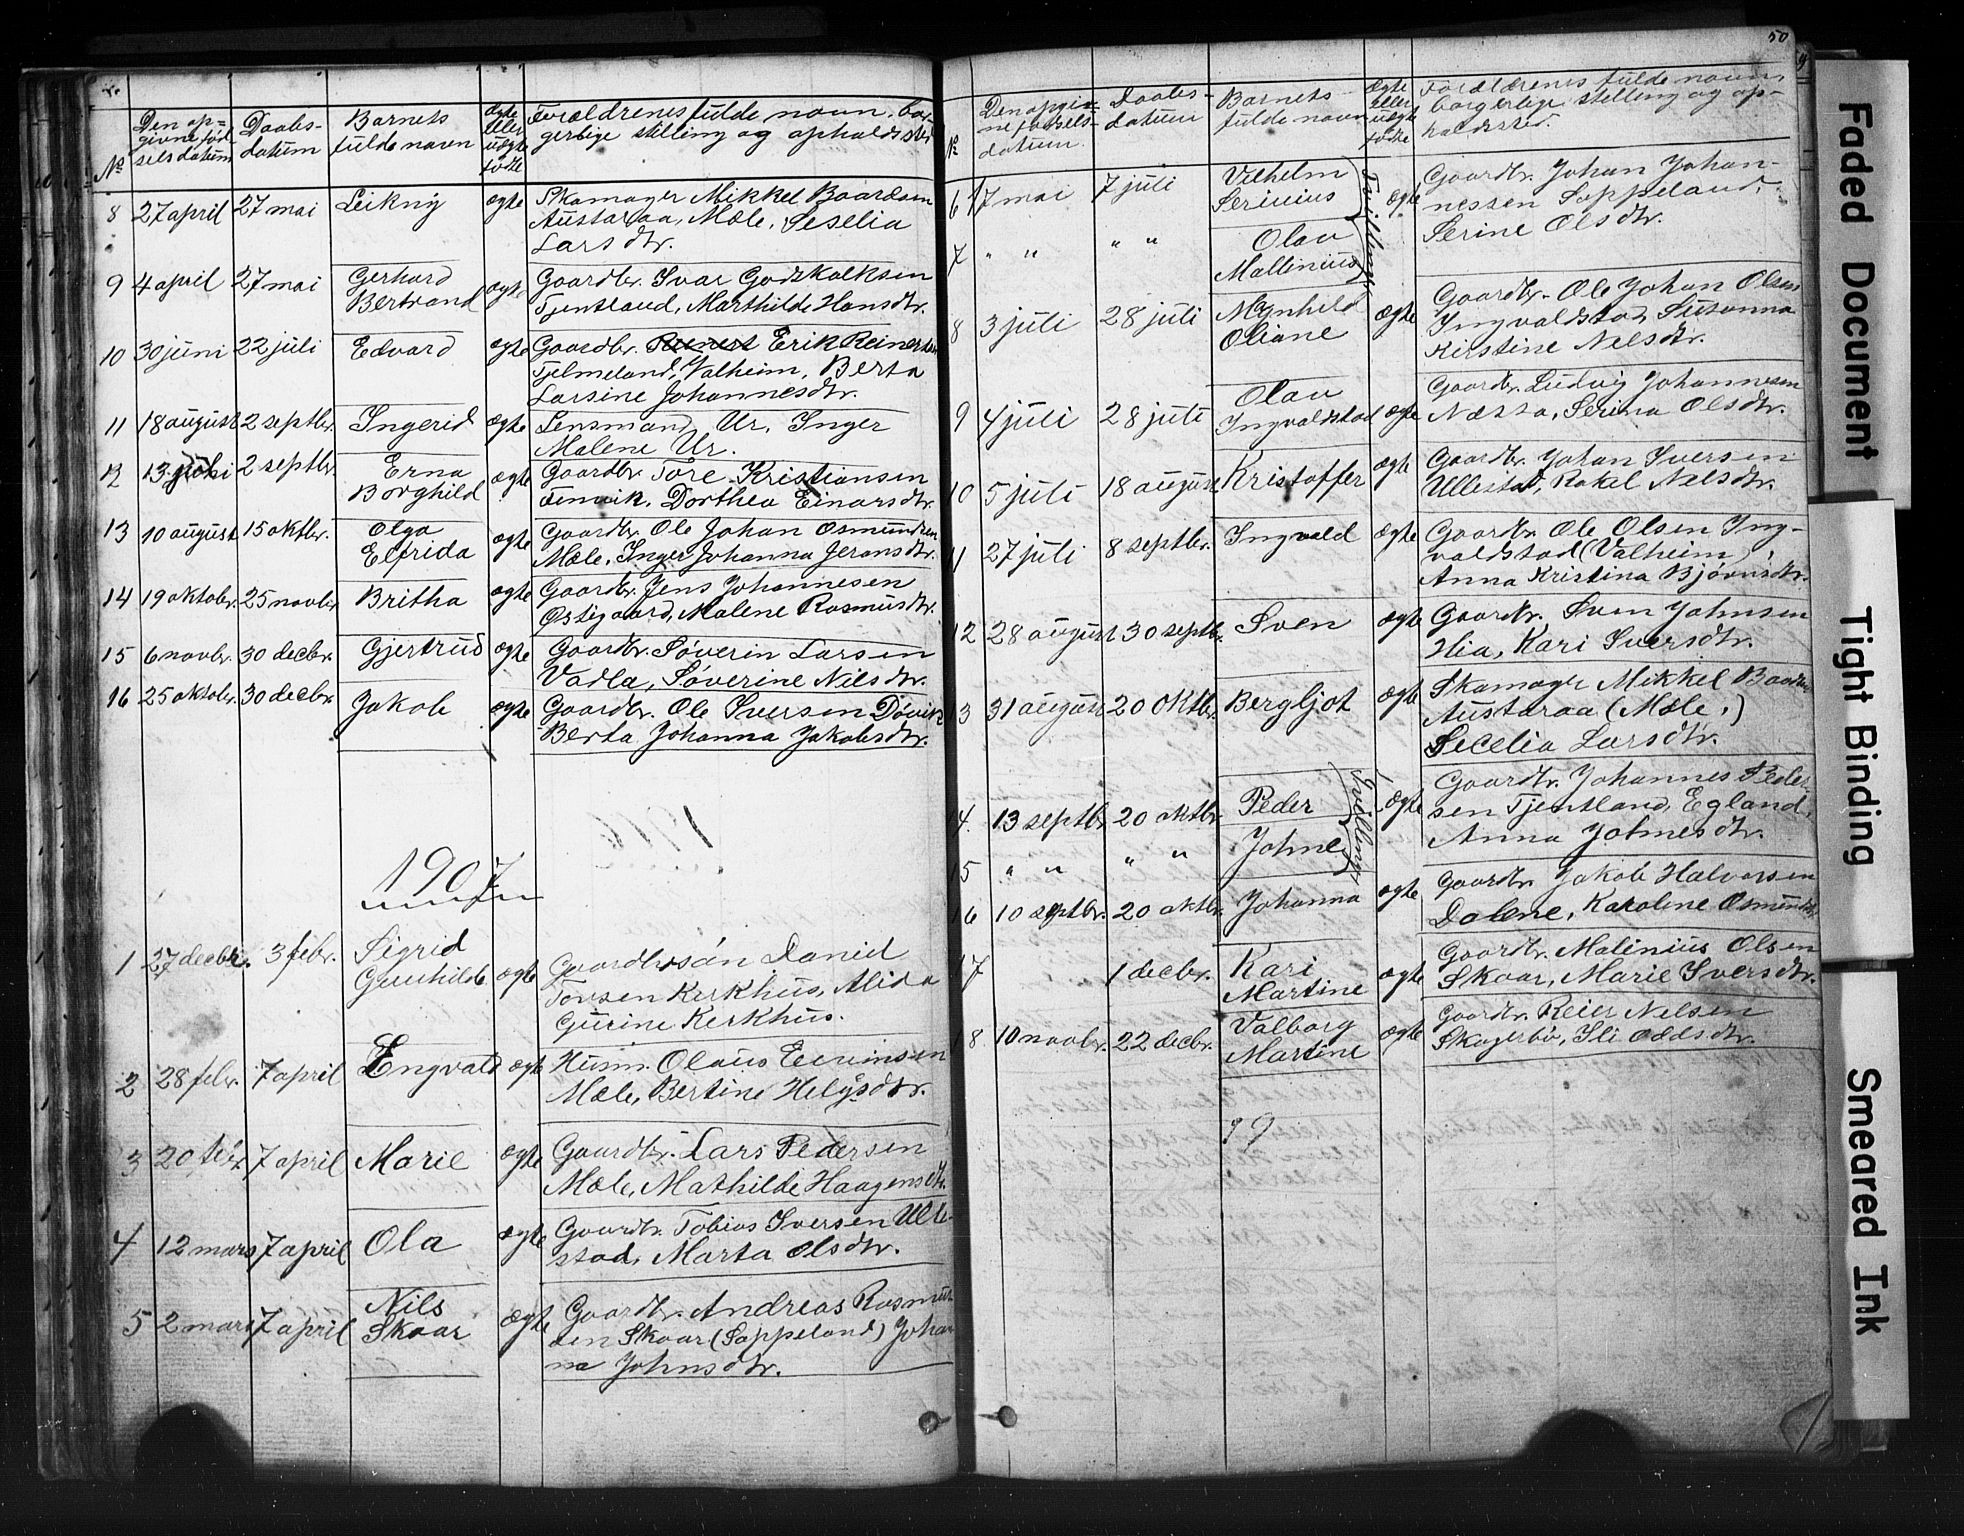 Den op=
givne fød
selsdatum
Daabs-
datum
Barnets
fulde navn
ægte
eller
uægte
fødte
Forældrenes fulde navn, bor
gerlige stilling og opholdssted
No
8 27 april 27 mai Leikny ægte Skomager Mikkel Baardsen
Austaraa, Mæle, Seselia
Larsdtr.
9 4 april 27 mai Gerhard
Bertrand ægte Gaardbr. Ivar Godskalksen
Tjentland, Marthilde Hansdtr.
10 30 juni 22 juli Edvard ægte Gaardbr. Erik Reinertsen
Tjelmeland, Valheim, Berta
Larsine Johannesdtr.
11 18 august 2 septbr. Ingerid ægte Lensmand Ur, Inger
Malene Ur.
12 13 juli 2 septbr. Erna
Borghild ægte Gaardbr Tore Kristiansen
Femvik, Dorthea Einarsdtr.
13 10 august 15 oktbr. Olga
Elfrida ægte Gaardbr. Ole Johan Osmundsen
Mæle, Inger Johanna Jeransdtr.
14 19 oktobr. 25 novbr Britha ægte Gaardbr. Jens Johannesen
Østigaard, Malene Rasmusdtr.
15 6 novbr. 30 decbr. Gjertrud ægte Gaardbr. Søverin Larsen
Vadla, Søverine Nilsdtr.
16 25 oktobr. 30 decbr. Jakob ægte Gaardbr. Ole Iversen Døvik
Berta Johanna Jakobsdtr.
1907
1 27 decbr. 3 febr. Sigrid
Gunhilde ægte Gaardbr.søn Daniel
Torsen Kerkhus, Alida
Gurine Kerkhus.
2 28 febr. 7 april Engvald ægte Husm. Olaus Eevinsen
Mæle, Bertine Helgesdtr.
3 20 febr 7 april Marie ægte Gaardbr. Lars Pedersen
Mæle, Mathilde Haagensdtr.
4 12 mars 7 april Ola ægte Gaardbr. Tobias Iversen Ulle-
stad, Marta Olsdtr.
5 2 mars 7 april Nils
Skaar ægte Gaardbr. Andreas Rasmus-
sen Skaar (Sappeland) Johan
na Johnsdtr.
50
No
Den opgiv=
ne fødsels-
datum.
Daabs-
datum
Barnets
fulde navn
ægte
eller
uægte
fødte
Forældrenes fulde navn,
borgerlige stilling og op-
holdssted.
6 17 mai 7 juli Vilhelm
Serinius Tvillinger ægte Gaardbr. Johan Johan-
nessen Sappeland,
Serine Olsdtr.
7 " " " " Olav
Mallinius
8 3 juli 28 juli Magnhild
Oliane ægte Gaardbr. Ole Johan Olsen
Ingvaldstad, Susanna
Kirstine Nelsdtr.
9 4 juli 28 juli Olav
Ingvaldstad ægte Gaardbr. Ludvig Johannesen
Næssa, Serina Olsdtr.
10 5 juli 18 august Kristoffer ægte Gaardbr. Johan Iversen
Ullestad, Rakel Nelsdtr.
11 27 juli 8 septbr. Ingvald ægte Gaardbr. Ole Olsen Ing-
valdstad (Valheim)
Anna Kristina Bjørnsdtr.
12 28 august 30 septbr. Sven ægte Gaardbr. Sven Johnsen
Hia, Kari Iversdtr.
13 31 august 20 oktbr. Bergljot ægte Skomager Mikkel Baardsen
Austaraa (Mæle,)
Secelia Larsdtr.
14. 13 septbr 20 oktbr. Peder Tvillinger ægte Gaardbr. Johannes Peder-
sen Tjentland, Egland,
Anna Johnesdtr.
15 " " " " Johne
16 10 septbr. 20 oktbr. Johanna ægte Gaardbr. Jakob Halvorsen
Dalene, Karoline Osmundsdtr.
17 1 decbr. Kari
Martine ægte Gaardbr. Malinius Olsen
Skaar, Marie Iversdtr.
18 10 novbr. 22 decbr. Valborg
Martine ægte Gaardbr. Reier Nelsen
Skogerbø, Sli Oddsdtr.
Faded Document
Tight Binding
Smeared Ink